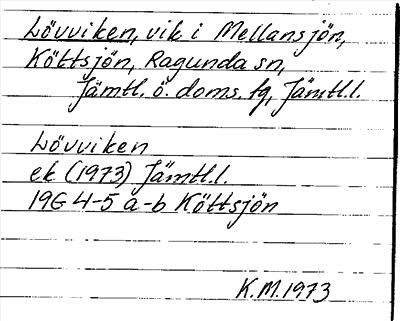 Lövviken, vik i Mellansjön,
Köttsjön, Ragunda sn,
Jämtl. ö. doms. tg, Jämtl.l.
Lövviken
ek (1973) Jämtl.l.
19G 4-5 a-b Köttsjön
K.M.1973